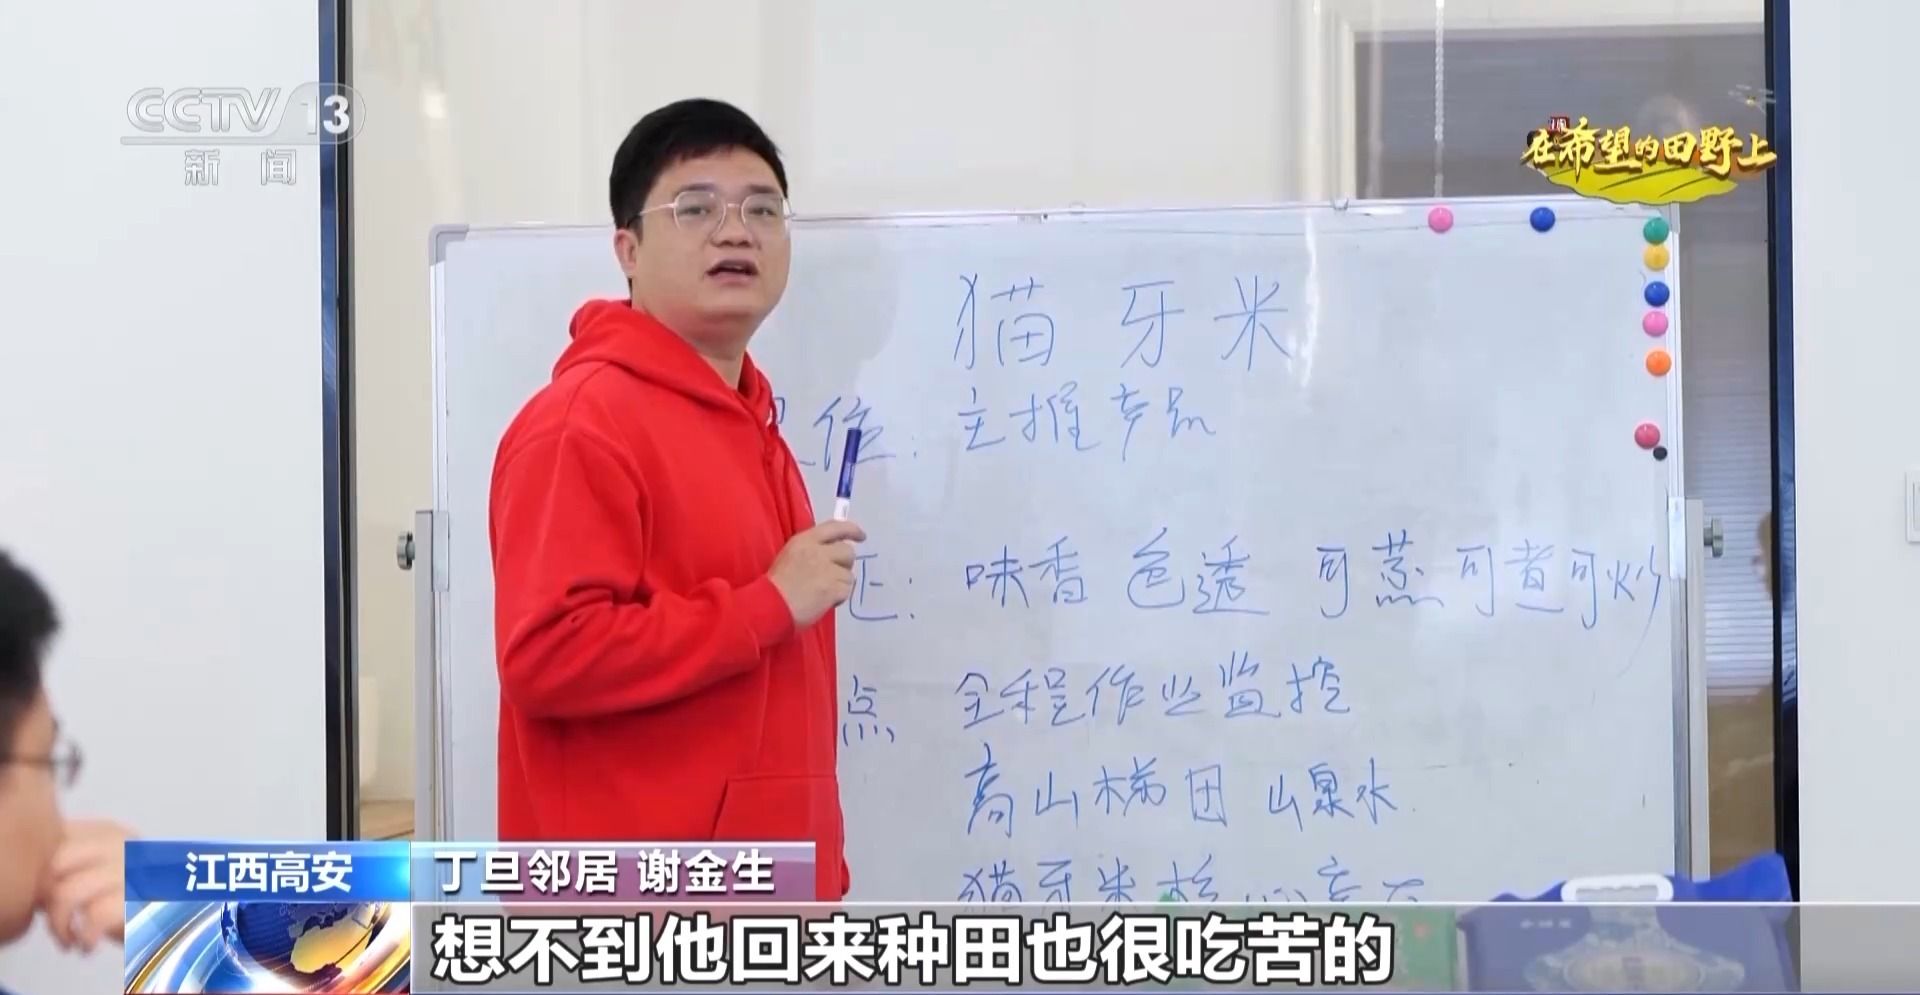 CCTV 13
新闻
在希望的田野上
猫牙米
位：主推产品
味香 色透 可蒸可煮可炒
点 全程作业监控
高山梯田 山泉水
猫牙米核心产
江西高安
丁旦邻居 谢金生
想不到他回来种田也很吃苦的